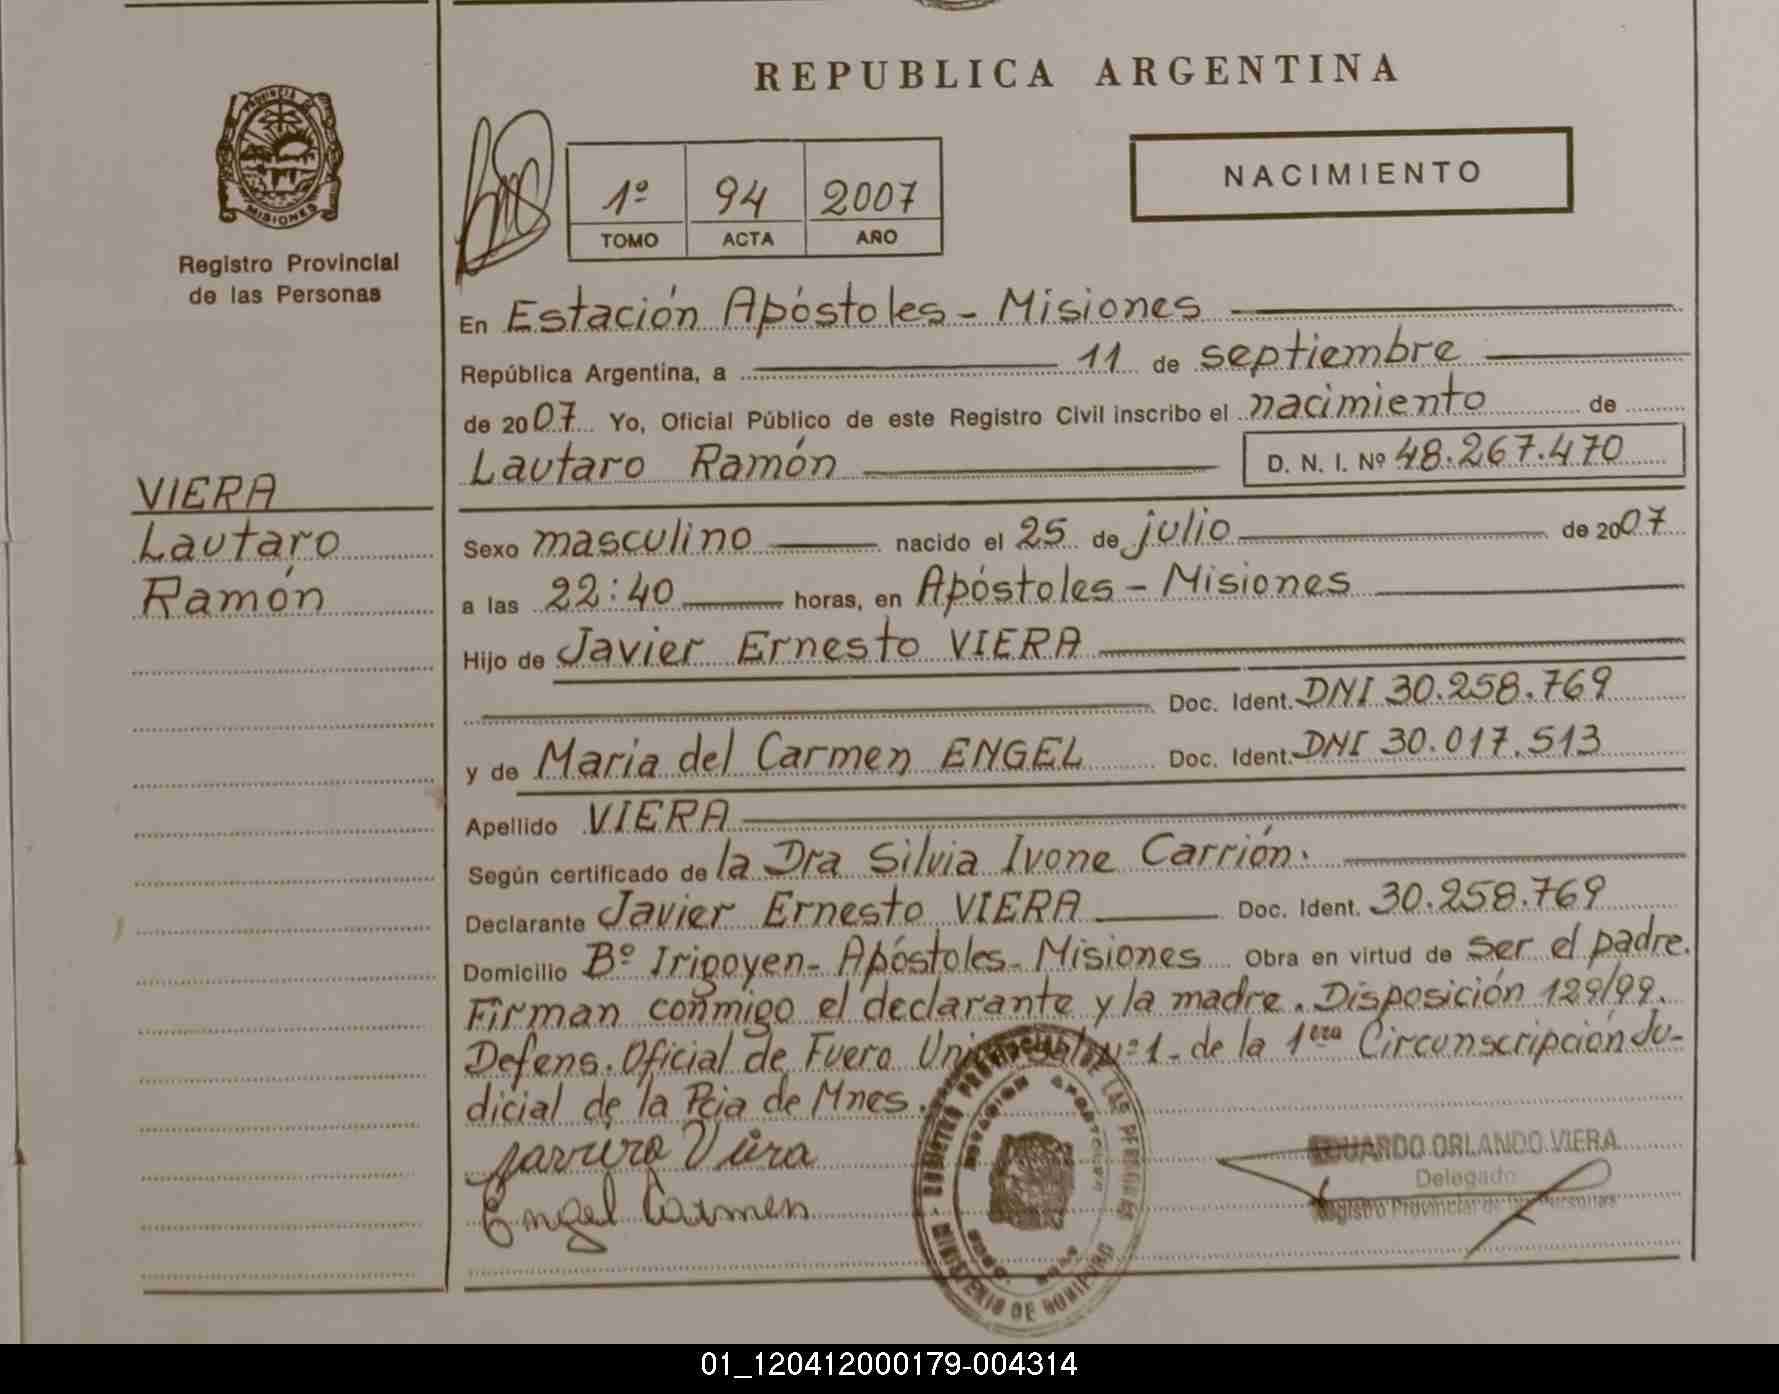 REPUBLICA ARGENTINA
PROVINCIA DE
MISIONES
Registro Provincial
de las Personas
1º 94 2007
TOMO ACTA AÑO
NACIMIENTO
En Estación Apóstoles - Misiones
República Argentina, a 11 de septiembre
de 2007 Yo, Oficial Público de este Registro Civil inscribo el nacimiento de
Lautaro Ramón D. N. I. Nº 48.267.470
VIERA
Lautaro
Ramón
Sexo masculino nacido el 25 de julio de 2007
a las 22:40 horas, en Apóstoles - Misiones
Hijo de Javier Ernesto VIERA
Doc. Ident. DNI 30.258.769
y de María del Carmen ENGEL Doc. Ident. DNI 30.017.513
Apellido VIERA
Según certificado de la Dra Silvia Ivone Carrión.
Declarante Javier Ernesto VIERA Doc. Ident. 30.258.769
Domicilio Bº Irigoyen - Apóstoles - Misiones Obra en virtud de ser el padre.
Firman conmigo el declarante y la madre. Disposición 129/99.
Defens. Oficial de Fuero Universal Nº 1 - de la 1era Circunscripción Ju-
dicial de la Pcia de Mnes.
Viera
Engel Carmen
EDUARDO ORLANDO VIERA
Delegado
Registro Provincial de las Personas
REGISTRO PROVINCIAL DE LAS PERSONAS
MINISTERIO DE GOBIERNO
01_120412000179-004314